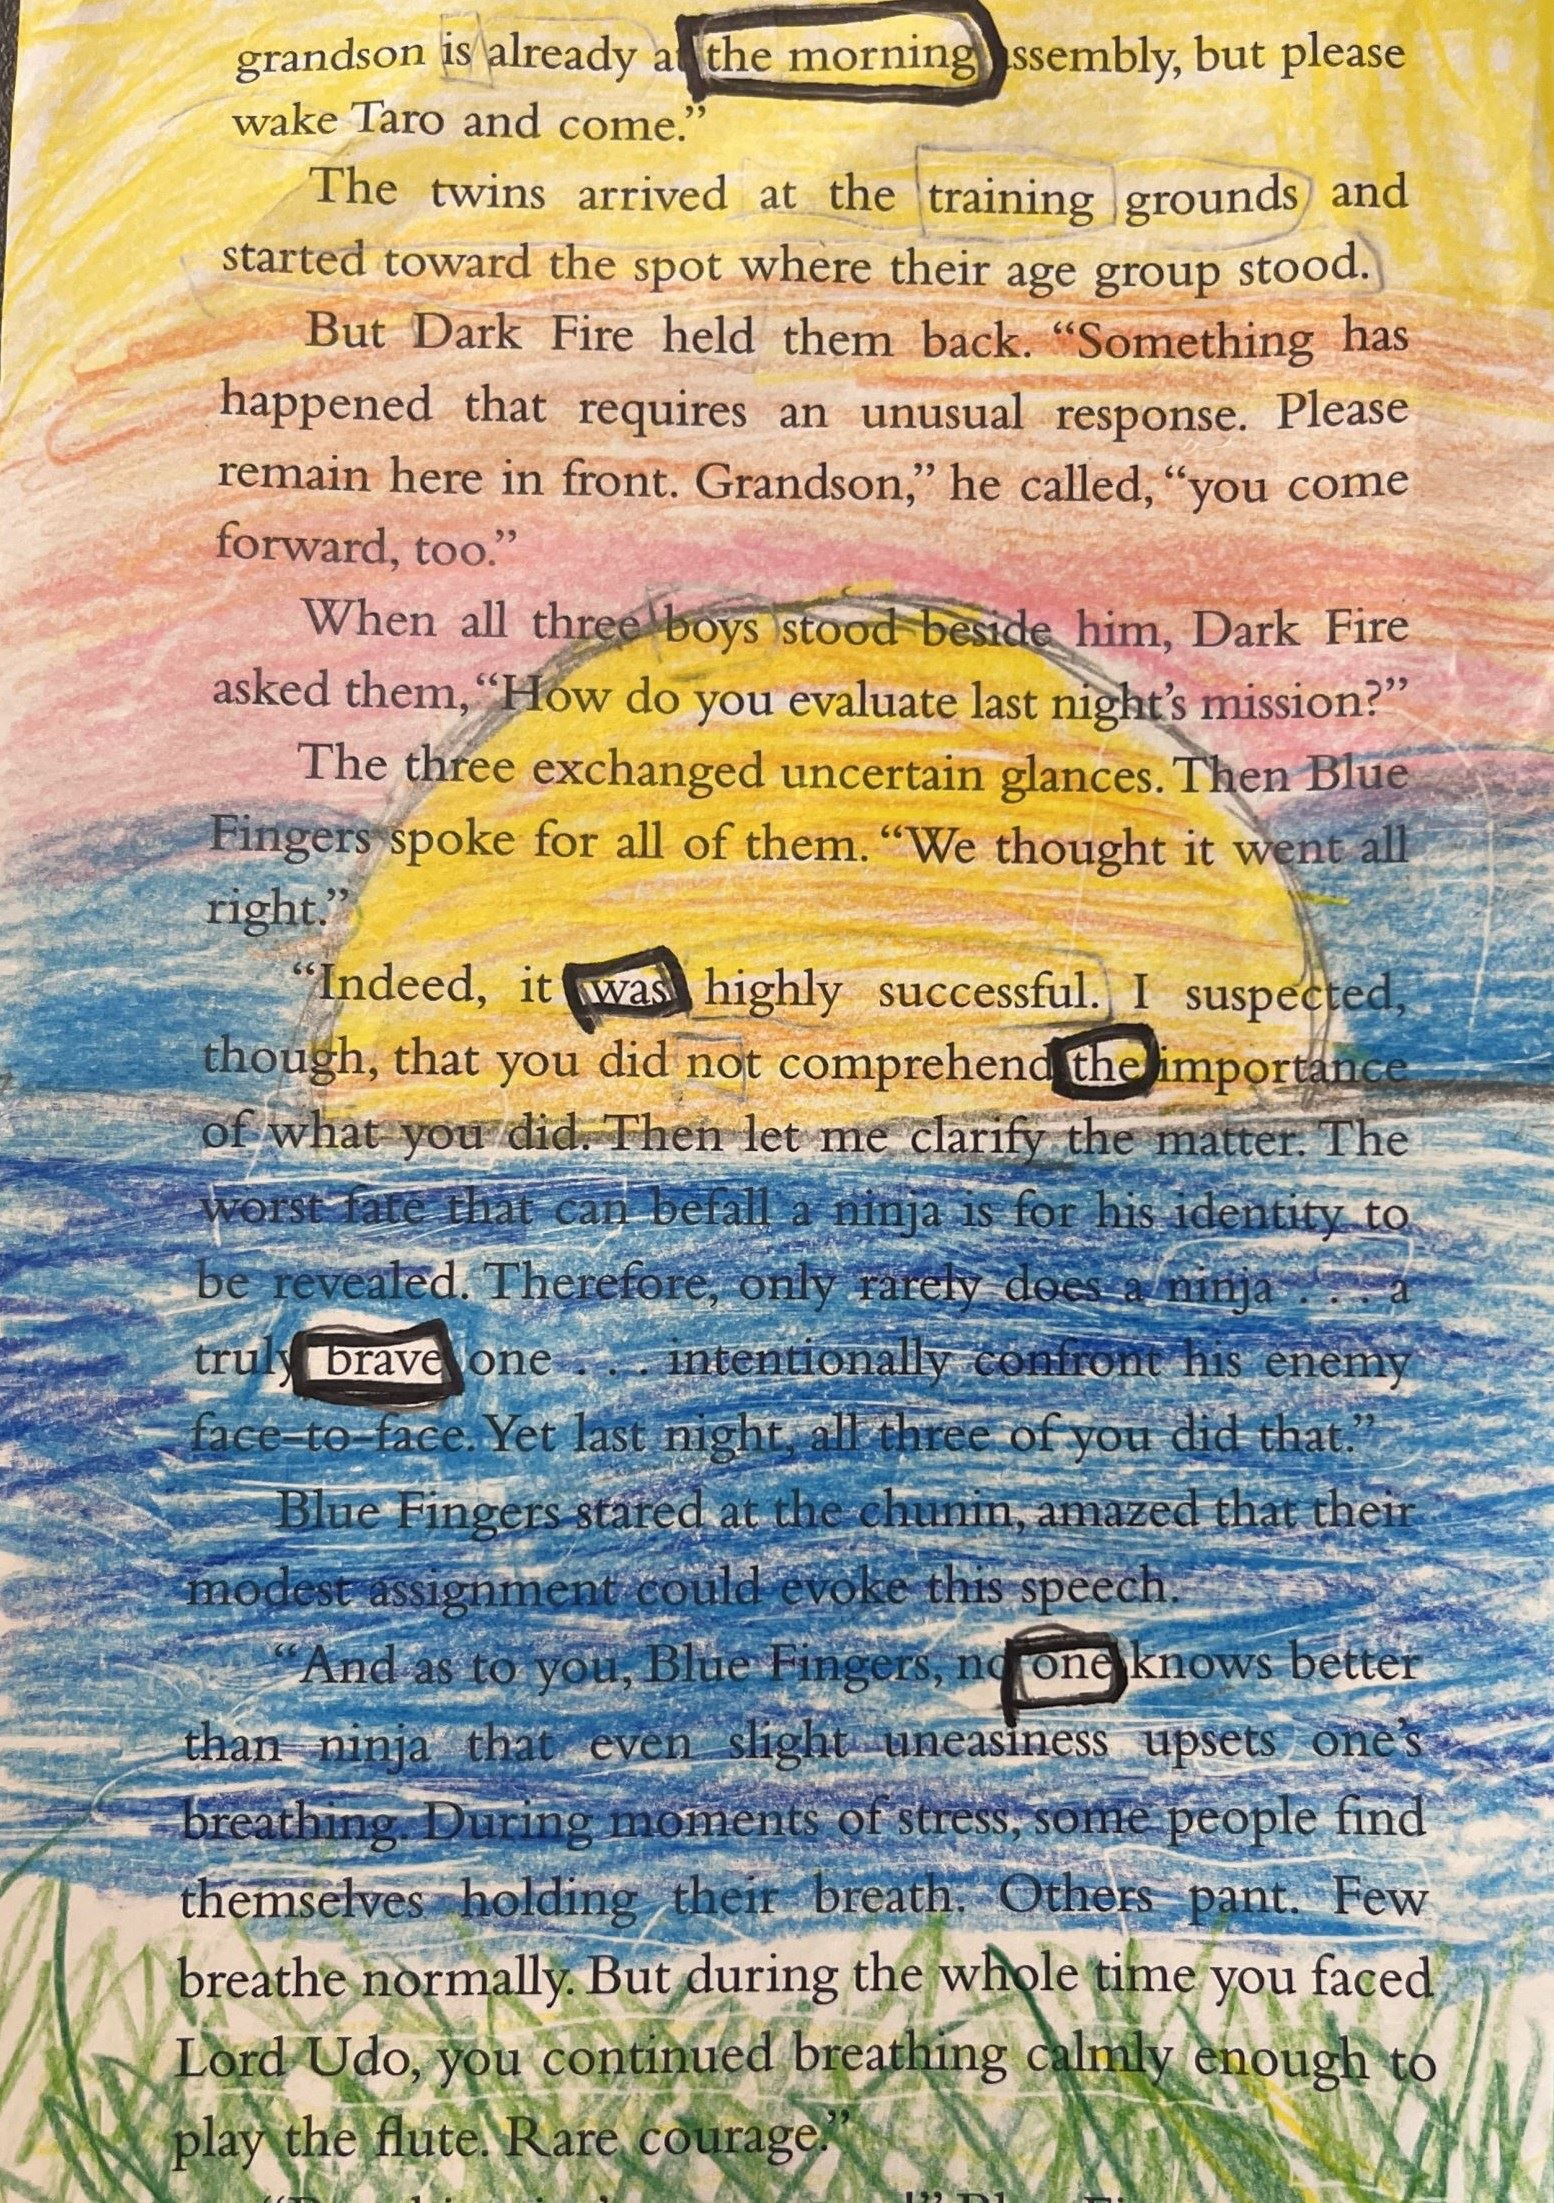 grandson is already at the morning assembly, but please
wake Taro and come.”
The twins arrived at the training grounds and
started toward the spot where their age group stood.
But Dark Fire held them back. “Something has
happened that requires an unusual response. Please
remain here in front. Grandson,” he called, “you come
forward, too.”
When all three boys stood beside him, Dark Fire
asked them, “How do you evaluate last night’s mission?”
The three exchanged uncertain glances. Then Blue
Fingers spoke for all of them. “We thought it went all
right.”
“Indeed, it was highly successful. I suspected,
though, that you did not comprehend the importance
of what you did. Then let me clarify the matter. The
worst fate that can befall a ninja is for his identity to
be revealed. Therefore, only rarely does a ninja . . . a
truly brave one . . . intentionally confront his enemy
face-to-face. Yet last night, all three of you did that.”
Blue Fingers stared at the chunin, amazed that their
modest assignment could evoke this speech.
“And as to you, Blue Fingers, no one knows better
than ninja that even slight uneasiness upsets one’s
breathing. During moments of stress, some people find
themselves holding their breath. Others pant. Few
breathe normally. But during the whole time you faced
Lord Udo, you continued breathing calmly enough to
play the flute. Rare courage.”